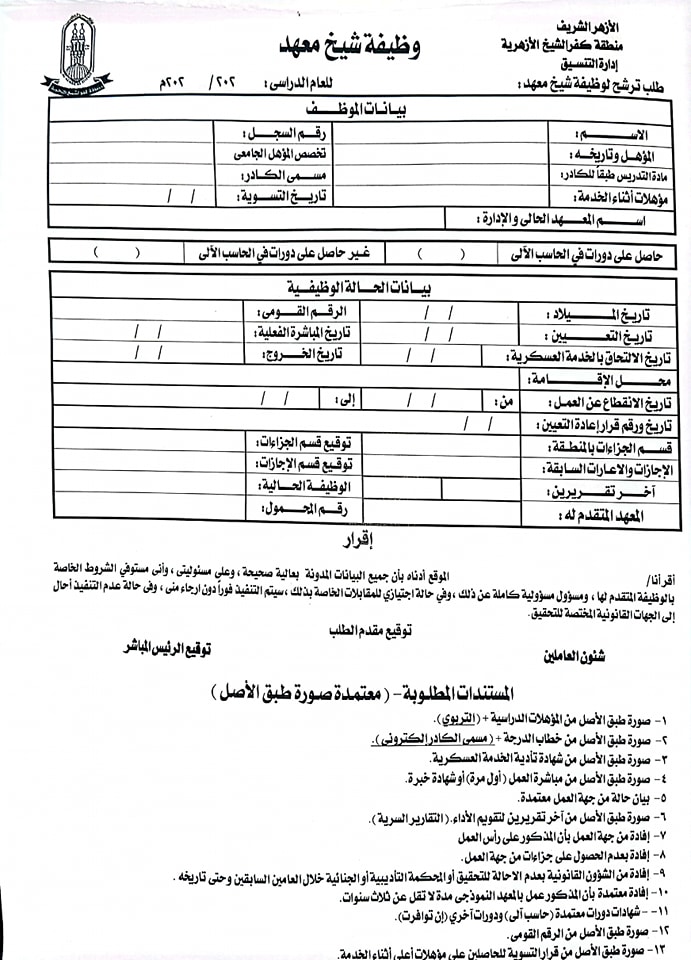 الأزهر الشريف
منطقة كفر الشيخ الأزهرية
إدارة التنسيق
وظيفة شيخ معهد
طلب ترشح لوظيفة شيخ معهد: للعام الدراسى: ٢٠٢ / ٢٠٢م
بيانات الموظف
الاسم: رقم السجل:
المؤهل وتاريخه: تخصص المؤهل الجامعى
مادة التدريس طبقاً للكادر: مسمى الكادر:
مؤهلات أثناء الخدمة: تاريخ التسوية: / /
اسم المعهد الحالى والإدارة:
حاصل على دورات في الحاسب الآلى ( ) غير حاصل على دورات في الحاسب الآلى ( )
بيانات الحالة الوظيفية
تاريخ الميلاد: / / الرقم القومى:
تاريخ التعيين: / / تاريخ المباشرة الفعلية: / /
تاريخ الالتحاق بالخدمة العسكرية: / / تاريخ الخروج: / /
محل الإقامة:
تاريخ الانقطاع عن العمل: من: / / إلى: / /
تاريخ ورقم قرار إعادة التعيين: / /
قسم الجزاءات بالمنطقة: توقيع قسم الجزاءات:
الإجازات والاعارات السابقة: توقيع قسم الإجازات:
آخر تقريرين: الوظيفة الحالية:
المعهد المتقدم له: رقم المحمول:
إقرار
أقر أنا/ الموقع أدناه بأن جميع البيانات المدونة بعالية صحيحة، وعلى مسئوليتى، وأنى مستوفي الشروط الخاصة
بالوظيفة المتقدم لها، ومسؤول مسؤولية كاملة عن ذلك، وفي حالة اجتيازي للمقابلات الخاصة بذلك، سيتم التنفيذ فوراً دون ارجاء منى، وفى حالة عدم التنفيذ أحال
إلى الجهات القانونية المختصة للتحقيق.
توقيع مقدم الطلب
شئون العاملين توقيع الرئيس المباشر
المستندات المطلوبة- (معتمدة صورة طبق الأصل)
١- صورة طبق الأصل من المؤهلات الدراسية + (التربوي).
٢- صورة طبق الأصل من خطاب الدرجة + (مسمى الكادر إلكترونى).
٣- صورة طبق الأصل من شهادة تأدية الخدمة العسكرية.
٤- صورة طبق الأصل من مباشرة العمل (أول مرة) أو شهادة خبرة.
٥- بيان حالة من جهة العمل معتمدة.
٦- صورة طبق الأصل من آخر تقريرين لتقويم الأداء. (التقارير السرية).
٧- إفادة من جهة العمل بأن المذكور على رأس العمل
٨- إفادة بعدم الحصول على جزاءات من جهة العمل.
٩- إفادة من الشؤون القانونية بعدم الاحالة للتحقيق أو المحكمة التأديبية أو الجنائية خلال العامين السابقين وحتى تاريخه.
١٠- إفادة معتمدة بأن المذكور عمل بالمعهد النموذجى مدة لا تقل عن ثلاث سنوات.
١١- -شهادات دورات معتمدة (حاسب آلى) ودورات آخري (إن توافرت).
١٢- صورة طبق الأصل من الرقم القومى.
١٣- صورة طبق الأصل من قرار التسوية للحاصلين على مؤهلات أعلى أثناء الخدمة.